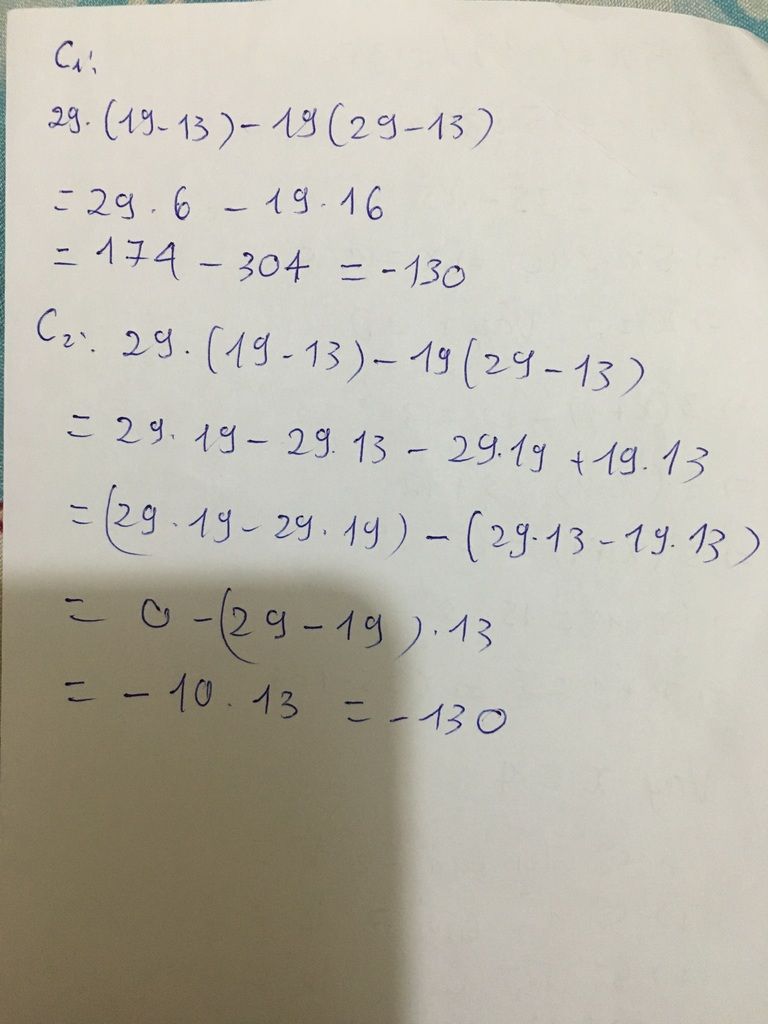 C₁:
29.(19-13)-19(29-13)
=29.6 -19.16
=174-304 =-130
C₂: 29.(19-13)-19(29-13)
=29.19-29.13-29.19+19.13
=(29.19-29.19)-(29.13-19.13)
= 0-(29-19).13
=-10.13 =-130